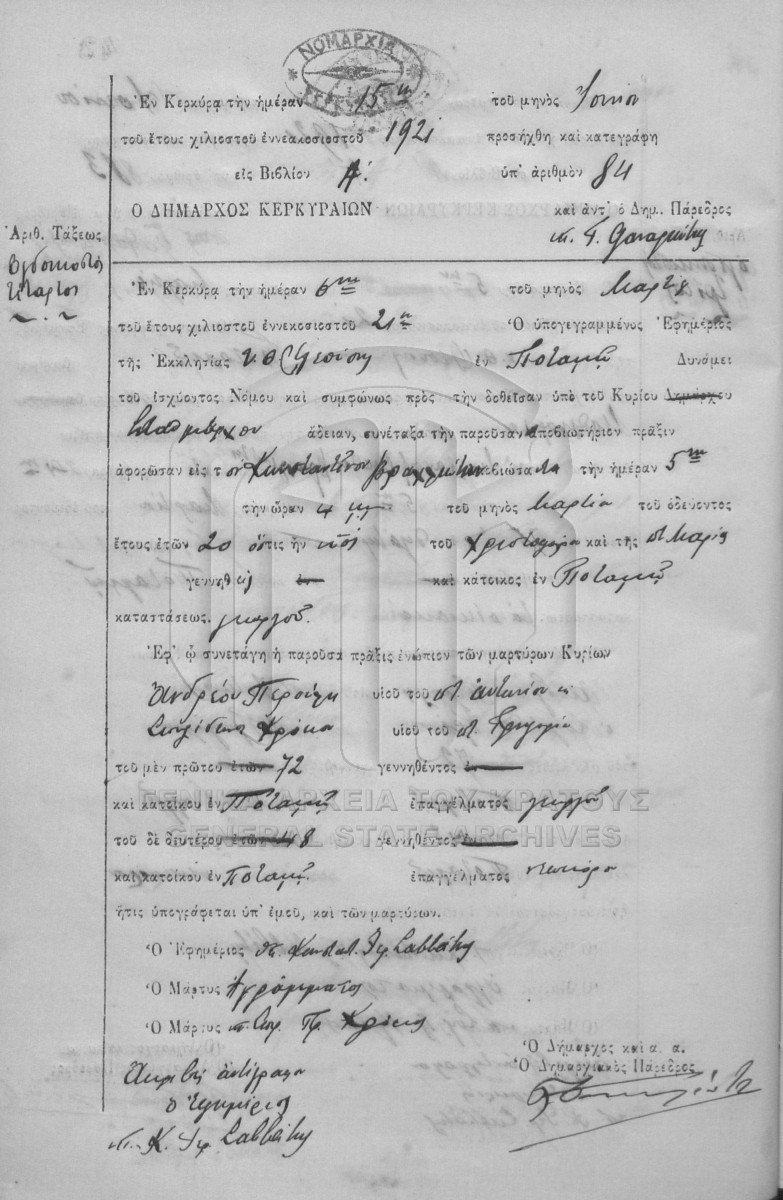 ΝΟΜΑΡΧΙΑ
ΚΕΡΚΥΡΑΣ
Ἐν Κερκύρᾳ τὴν ἡμέραν 15ην τοῦ μηνὸς Ἰουνίου
τοῦ ἔτους χιλιοστοῦ ἐννεακοσιοστοῦ 1921 προσήχθη καὶ κατεγράφη
εἰς Βιβλίον Α΄. ὑπ' ἀριθμὸν 84
Ο ΔΗΜΑΡΧΟΣ ΚΕΡΚΥΡΑΙΩΝ καὶ ἀντ' ὁ Δημ. Πάρεδρος
Ἀριθ. Τάξεως
Ὀγδοηκοστὸς
τέταρτος
Ἐν Κερκύρᾳ τὴν ἡμέραν 6ην τοῦ μηνὸς Μαρτίου
τοῦ ἔτους χιλιοστοῦ ἐννεκοσιοστοῦ 21ου Ὁ ὑπογεγραμμένος Ἐφημέριος
τῆς Ἐκκλησίας ἐν Ποταμῷ Δυνάμει
τοῦ ἰσχύοντος Νόμου καὶ συμφώνως πρὸς τὴν δοθεῖσαν ὑπὸ τοῦ Κυρίου Δημάρχου
ἄδειαν, συνέταξα τὴν παροῦσαν ἀποβιωτήριον πρᾶξιν
ἀφορῶσαν εἰς τὸν Κωνσταντῖνον ἀποβιώσαντα τὴν ἡμέραν 5ην
τὴν ὥραν 4 μμ τοῦ μηνὸς Μαρτίου τοῦ ὁδεύοντος
ἔτους ἐτῶν 20 ὅστις ἦν υἱὸς τοῦ Χριστοφόρου καὶ τῆς Μαρίας
γεννηθεὶς ἐν καὶ κάτοικος ἐν Ποταμῷ
καταστάσεως γεωργοῦ.
Ἐφ' ᾧ συνετάγη ἡ παροῦσα πρᾶξις ἐνώπιον τῶν μαρτύρων Κυρίων
Ἀνδρέου Περούλη υἱοῦ τοῦ Ἀντωνίου κ
Σπυρίδωνος Κρόκου υἱοῦ τοῦ Γρηγορίου
τοῦ μὲν πρώτου ἐτῶν 72 γεννηθέντος ἐν
καὶ κατοίκου ἐν Ποταμῷ ἐπαγγέλματος γεωργοῦ
τοῦ δὲ δευτέρου ἐτῶν 48 γεννηθέντος ἐν
καὶ κατοίκου ἐν Ποταμῷ. ἐπαγγέλματος
ἥτις ὑπογράφεται ὑπ' ἐμοῦ, καὶ τῶν μαρτύρων.
Ὁ Ἐφημέριος Κωνσταντ. Σαββάνης
Ὁ Μάρτυς Ἀγράμματος
Ὁ Μάρτυς Κρόκος
Ὁ Δήμαρχος καὶ α. α.
Ὁ Δημαρχιακὸς Πάρεδρος
Ἀκριβὲς ἀντίγραφον
ὁ Ἐφημέριος
Κ. Σαββάνης
ΓΕΝΙΚΑ ΑΡΧΕΙΑ ΤΟΥ ΚΡΑΤΟΥΣ
GENERAL STATE ARCHIVES